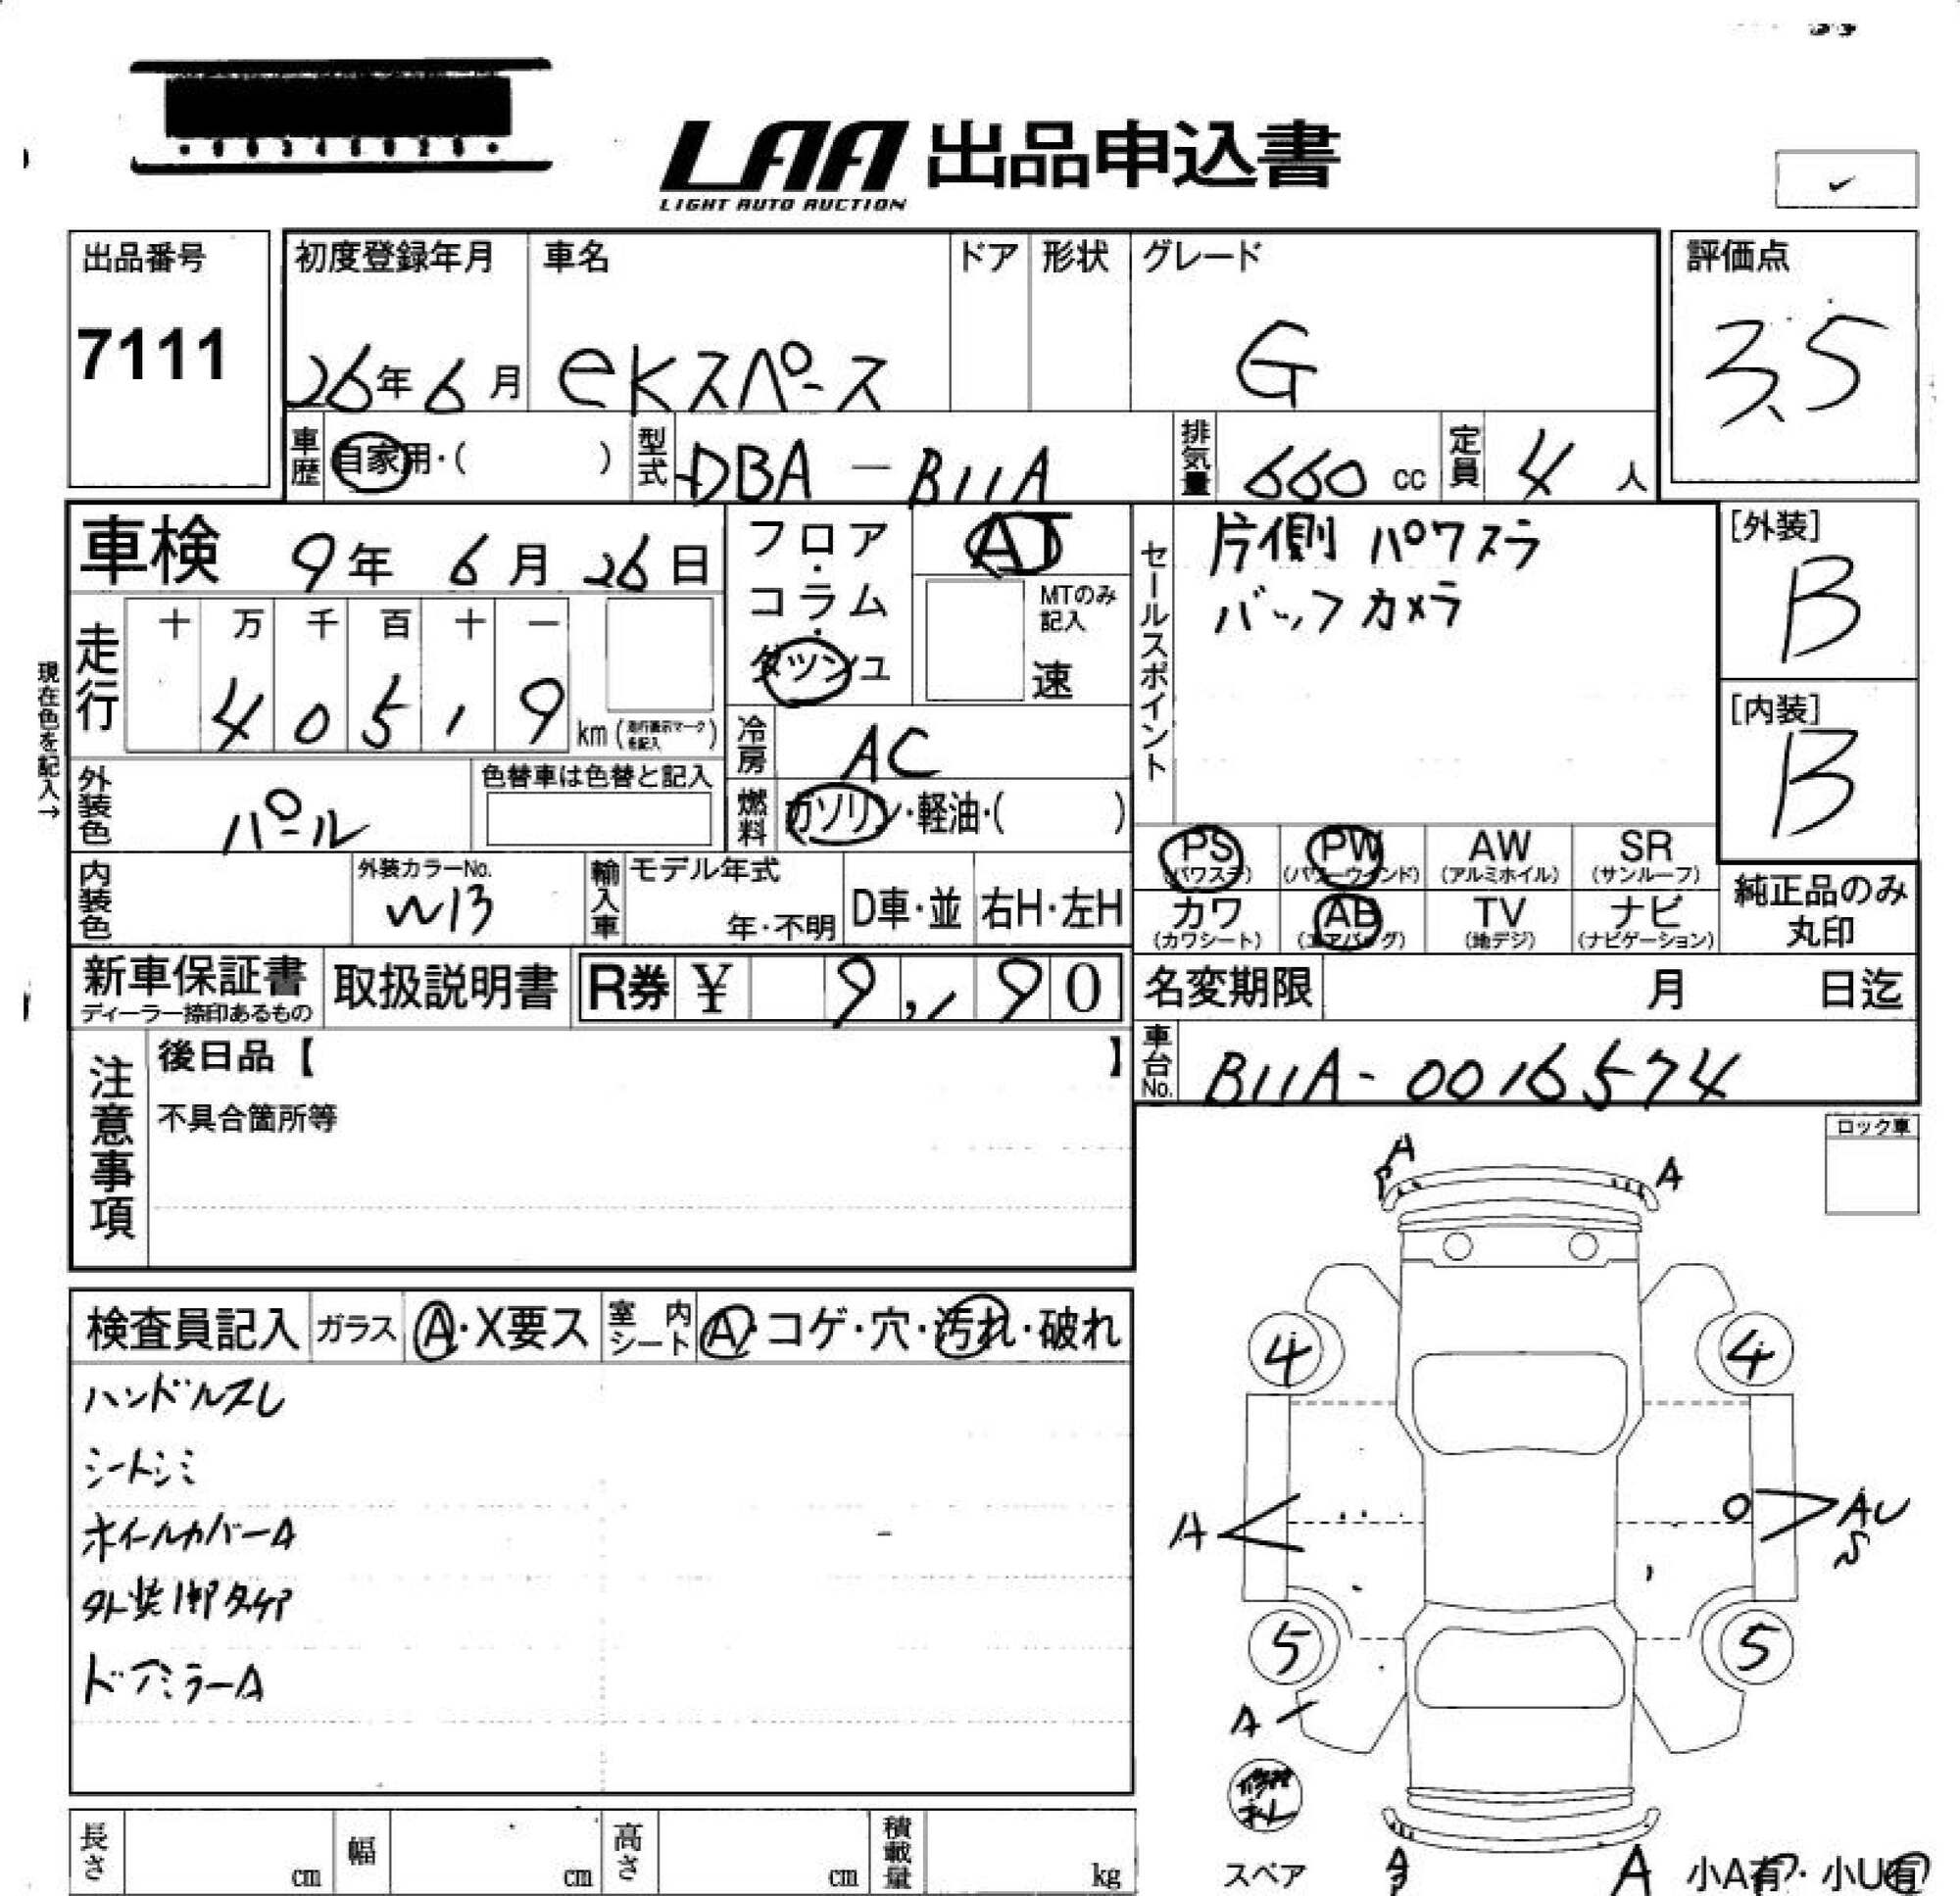 LAA 出品申込書
LIGHT AUTO AUCTION
出品番号
7111
初度登録年月
26年 6月
車名
eKスペース
ドア
形状
グレード
G
評価点
3.5
車歴
自家用・( )
型式
DBA-B11A
排気量
660 cc
定員
4 人
車検 9年 6月 26日
フロア・コラム・ダッシュ
AT
MTのみ記入
速
セールスポイント
片側 パワスラ
バックカメラ
[外装]
B
[内装]
B
現在色を記入→
走行
十 万 千 百 十 一
4 0 5 1 9 km (走行表示マークを記入)
冷房
AC
外装色
パール
色替車は色替と記入
燃料
ガソリン・軽油・( )
PS (パワステ)
PW (パワーウインド)
AW (アルミホイル)
SR (サンルーフ)
カワ (カワシート)
AB (エアバッグ)
TV (地デジ)
ナビ (ナビゲーション)
純正品のみ丸印
内装色
外装カラーNo.
W13
輸入車
モデル年式
年・不明
D車・並
右H・左H
新車保証書
ディーラー捺印あるもの
取扱説明書
R券 ¥ 9,190
名変期限 月 日迄
注意事項
後日品【 】
不具合箇所等
車台No.
B11A-0016574
ロック車
A
A
検査員記入
ガラス
A・X要ス
室内シート
A・コゲ・穴・汚れ・破れ
ハンドルスレ
シートシミ
ホイールカバーA
ドアミラーA
4
4
A
AU
S
5
5
A
修復ナシ
長さ cm
幅 cm
高さ cm
積載量 kg
スペア
A
A
小A有・小U有